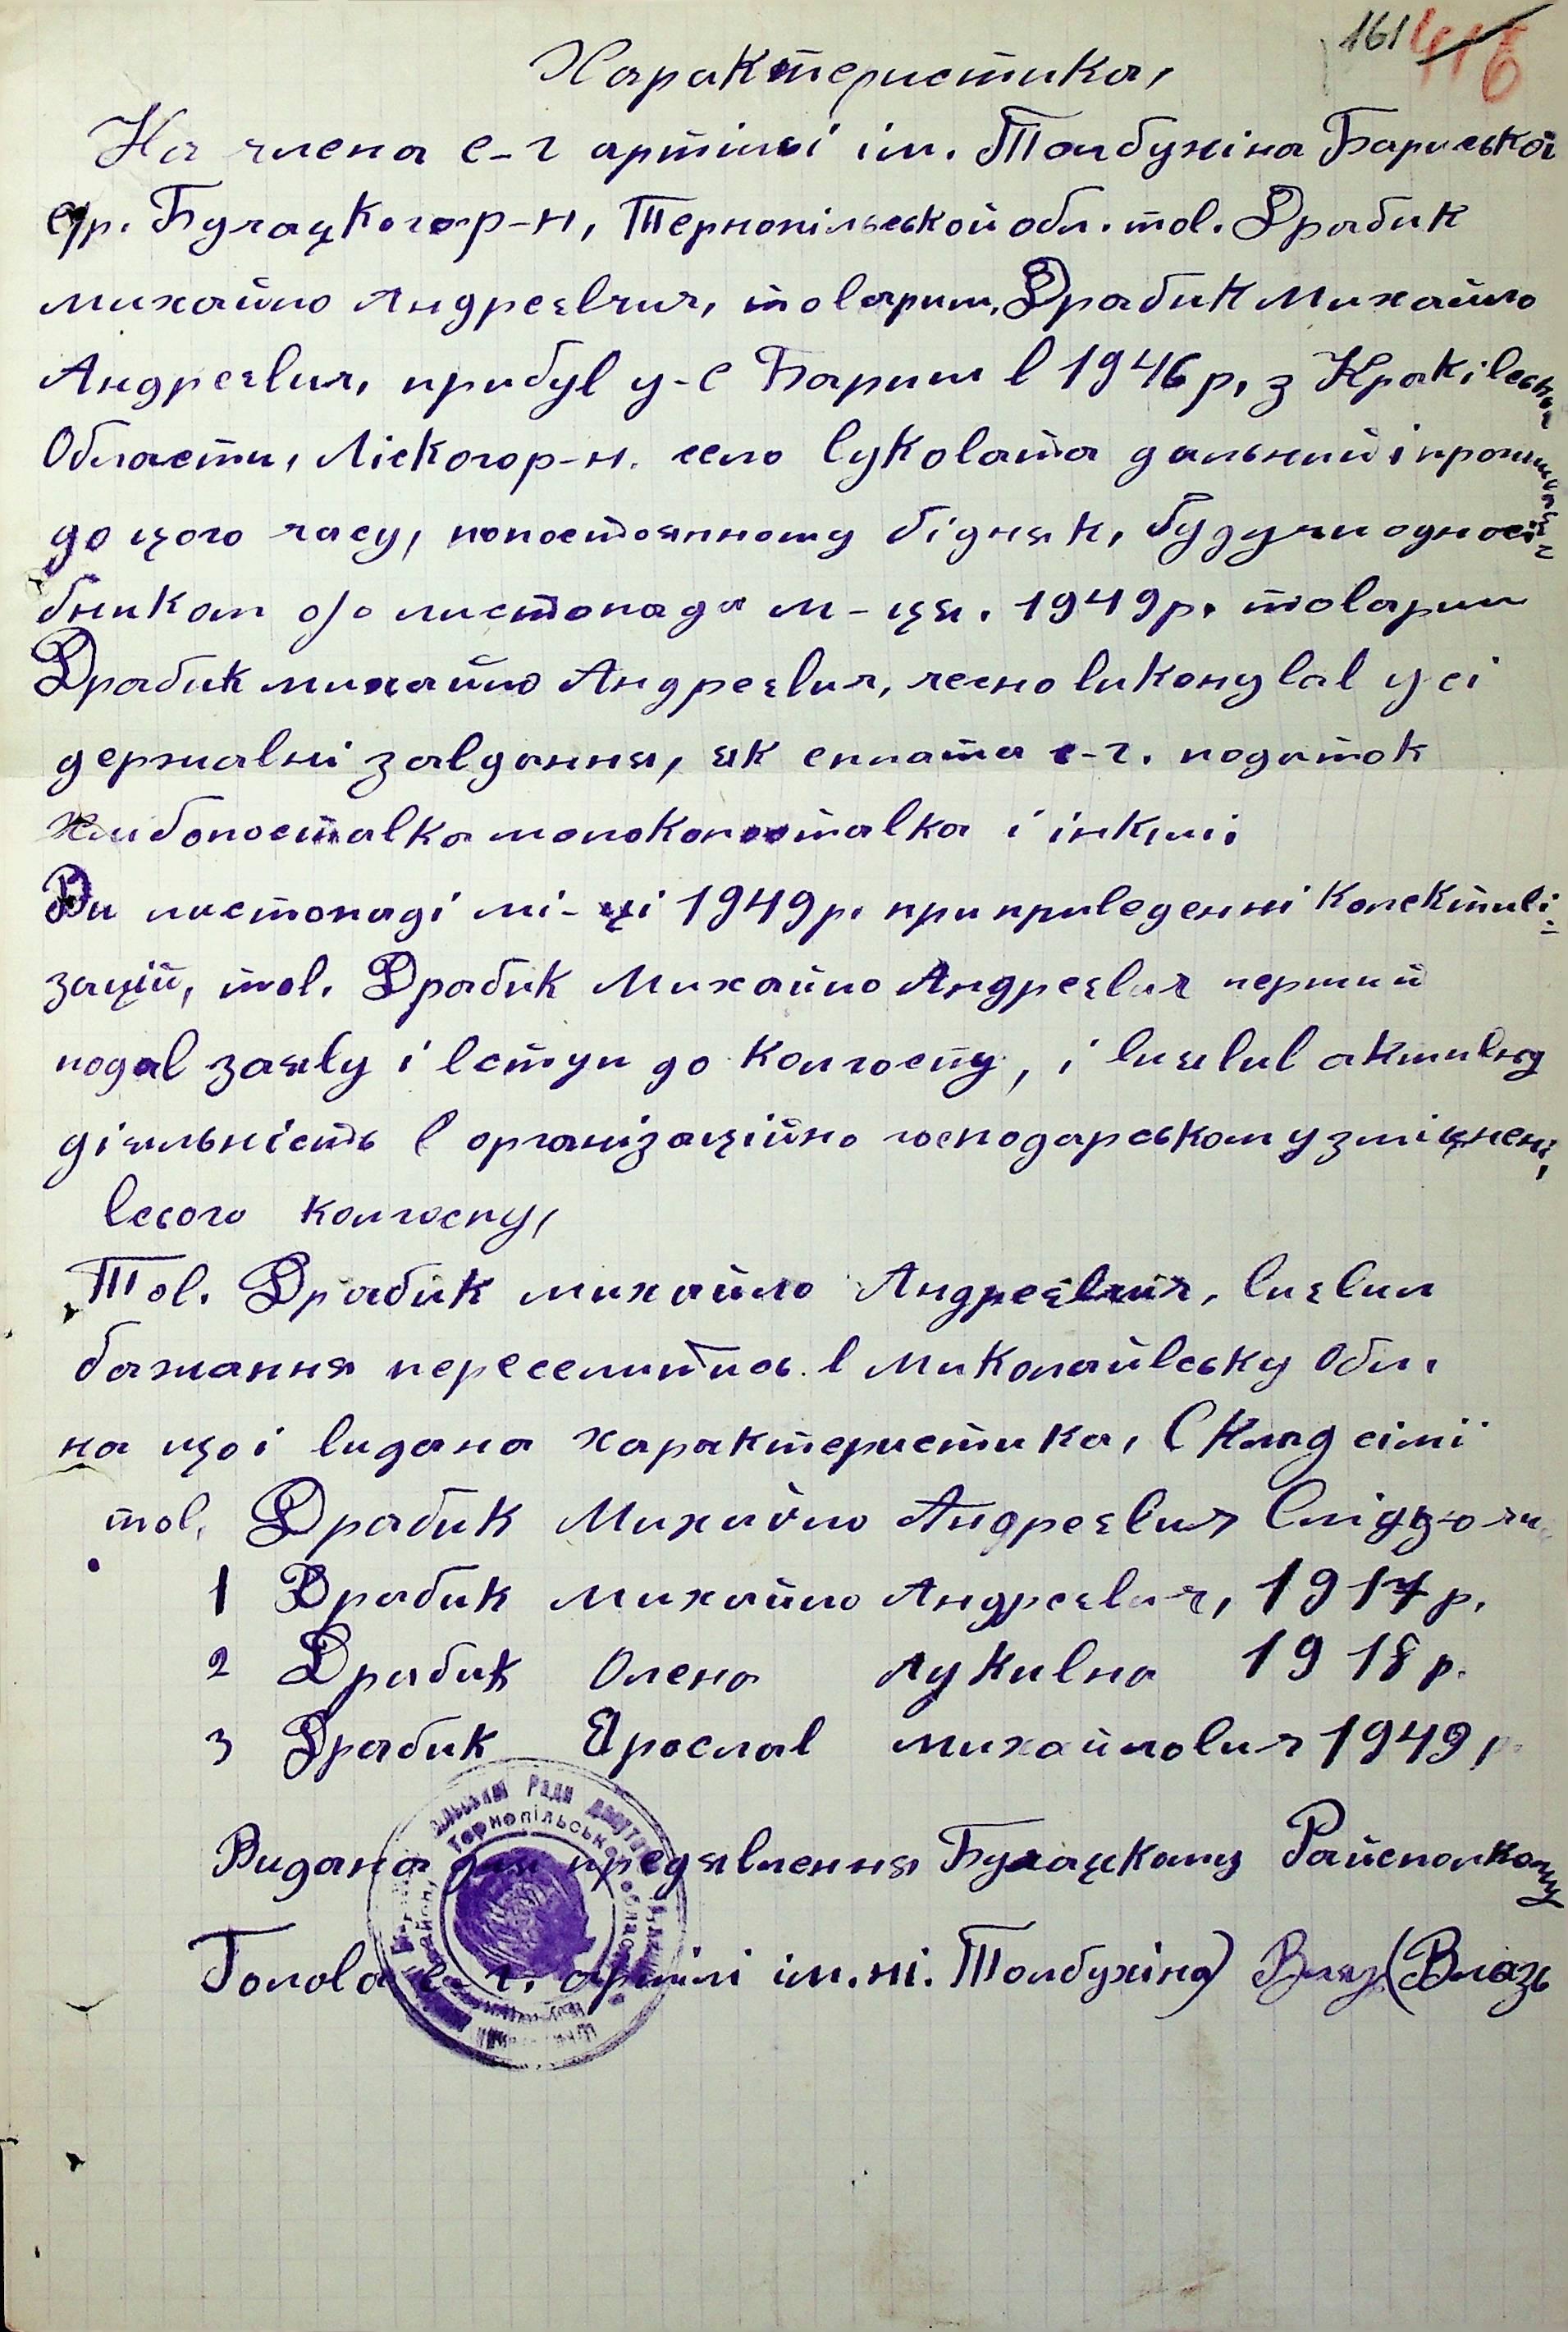 161 416
Характеристика,
На члена с-г артілі ім. Толбухіна Бариської
с/р. Бучацкого р-н, Тернопільської обл. тов. Драбик
михайло Андреєвич, товариш, Драбик Михайло
Андреєвич, прибув у-с Бариш в 1946 р, з Краківської
Области, Ліского р-н. село
до цого часу, бідняк, будучи одноосі-
бником до листопада м-ця. 1949 р. товариш
Драбик михайло Андреєвич, чесно виконував усі
державні завдання, як сплата с-г. податок
хлибопоставка молокопоставка і інкші
Ви листопаді мі-ці 1949 р. при приведенні колективі-
зації, тов. Драбик Михайло Андреєвич перший
подав заяву і вступ до колгоспу, і виявив активну
діяльність в організаційно господарському зміцнені,
всього колгоспу,
Тов. Драбик михайло Андреєвич, виєвил
бажання переселитись в Миколаївську Обл.
на що і видана характеристика, Склад сімї
тов. Драбик Михайло Андреєвич
1 Драбик михайло Андреєвич, 1917 р.
2 Драбик Олена лукивна 1918 р.
3 Драбик Ярослав михайлович 1949 р.
Видана для предявлення Бучацкому Райсполкому
Голова с-г. артілі ім.ні. Толбухіна) Влаз (Влазь